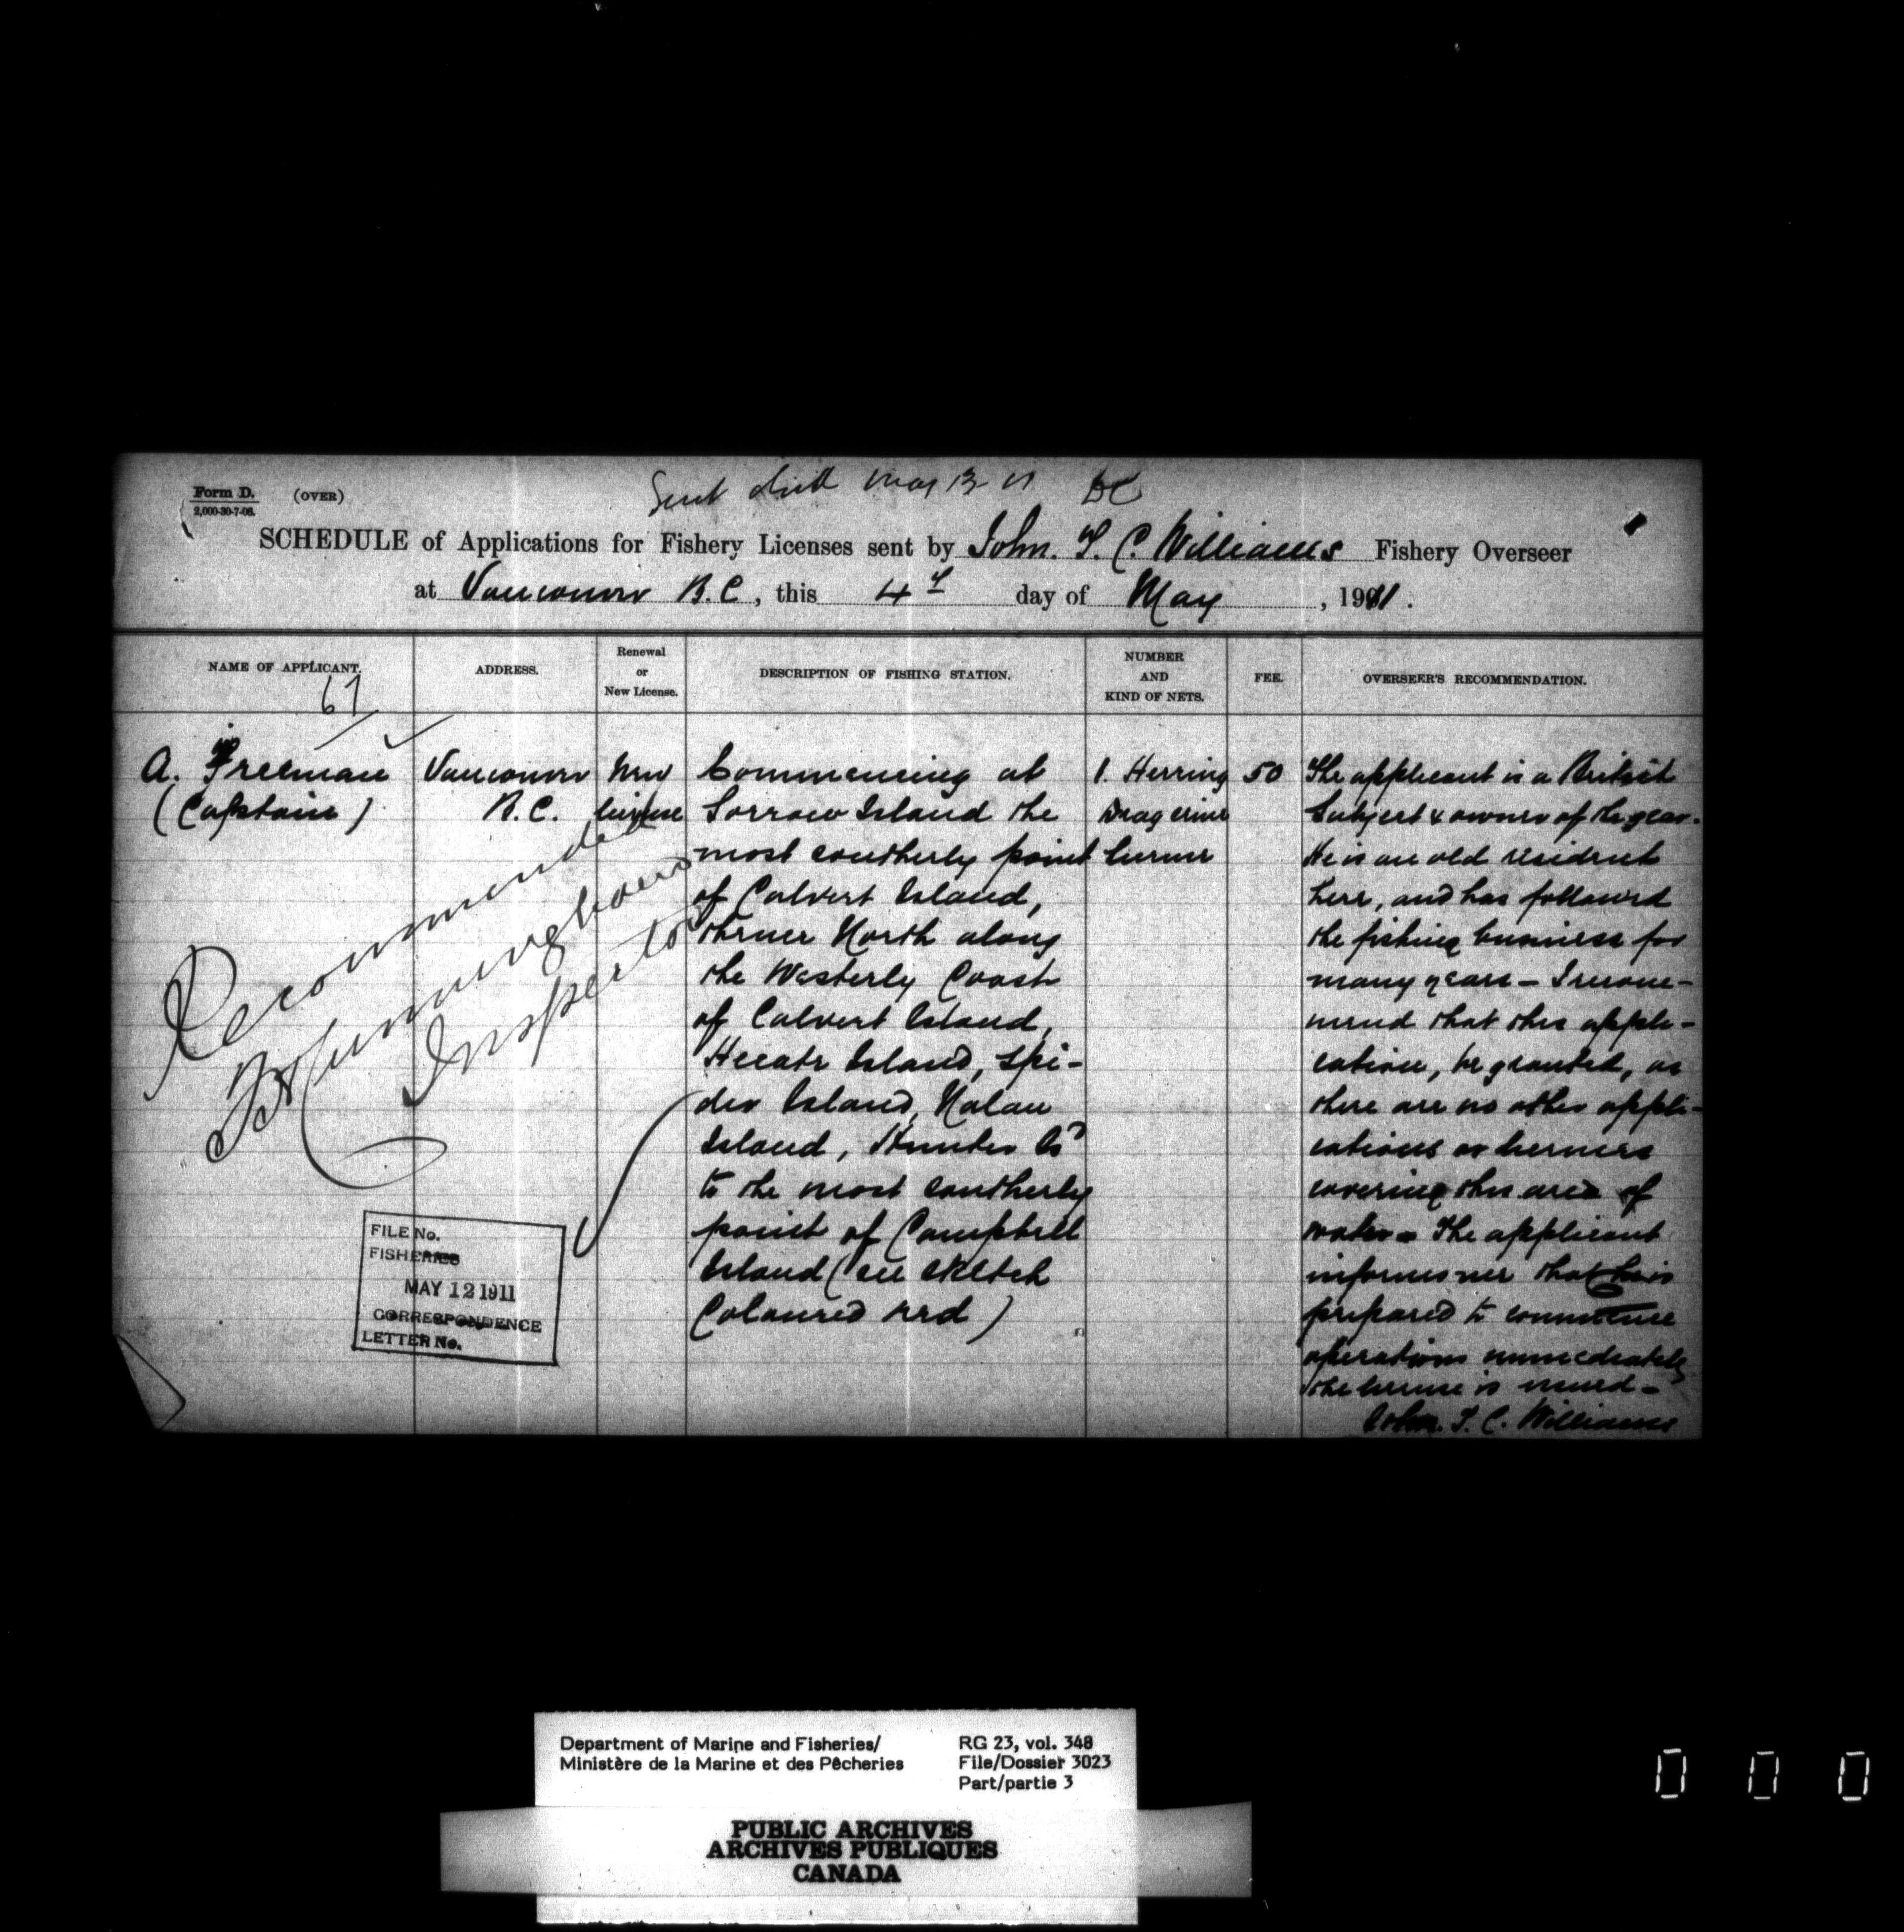 Form D.
(OVER)
2,000-30-7-08.
Sent May 13 11
SCHEDULE of Applications for Fishery Licenses sent by John. T. C. Williams Fishery Overseer
at Vancouver B.C, this 4th day of May, 1911.
NAME OF APPLICANT.
ADDRESS.
Renewal
or
New License.
DESCRIPTION OF FISHING STATION.
NUMBER
AND
KIND OF NETS.
FEE.
OVERSEER'S RECOMMENDATION.
67
A. Freeman
(Captain)
Vancouver
B.C.
New
license
Commencing at
Sorrow Island the
most southerly point
of Calvert Island,
thence North along
the Westerly Coast
of Calvert Island,
Hecate Island, Spi-
der Island, Nalau
Island, Hunter Isd
to the most southerly
point of Campbell
Island (see sketch
Coloured red)
1. Herring
Drag seine
license
50
The applicant is a British
Subject & owner of the gear.
He is an old resident
here, and has followed
the fishing business for
many years - I recom-
mend that this appli-
cation, be granted, as
there are no other appli-
cations or licenses
covering this area of
water - The applicant
informs me that he is
prepared to commence
operations immediately
the license is issued -
John. T. C. Williams
Recommended
Inspector
FILE No.
FISHERIES
MAY 12 1911
CORRESPONDENCE
LETTER No.
Department of Marine and Fisheries/
Ministère de la Marine et des Pêcheries
RG 23, vol. 348
File/Dossier 3023
Part/partie 3
PUBLIC ARCHIVES
ARCHIVES PUBLIQUES
CANADA
0 0 0